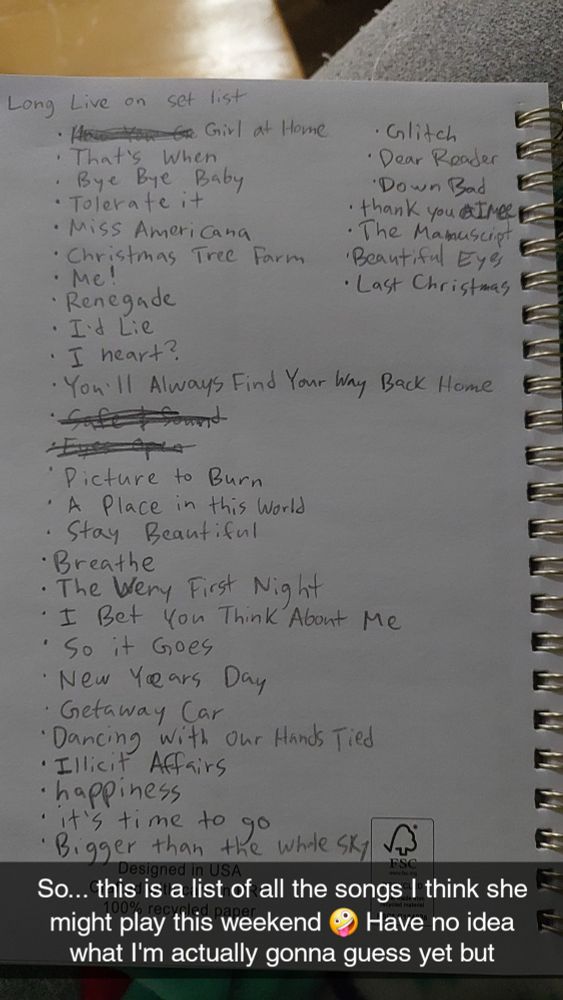 Long Live on set list
• How You Ge Girl at Home
• That's When
• Bye Bye Baby
• Tolerate it
• Miss Americana
• Christmas Tree Farm
• Me!
• Renegade
• I'd Lie
• I heart?
• You'll Always Find Your Way Back Home
• Safe & Sound
• Eyes Open
• Picture to Burn
• A Place in this World
• Stay Beautiful
• Breathe
• The Very First Night
• I Bet You Think About Me
• So it Goes
• New Years Day
• Getaway Car
• Dancing with Our Hands Tied
• Illicit Affairs
• happiness
• it's time to go
• Bigger than the whole sky
• Glitch
• Dear Reader
• Down Bad
• thank you aIMee
• The Manuscript
• Beautiful Eyes
• Last Christmas
FSC
Designed in USA
100% recycled paper
So... this is a list of all the songs I think she
might play this weekend 🤪 Have no idea
what I'm actually gonna guess yet but